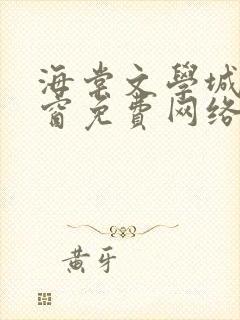 海棠文學城
窗免費网络
黄牙